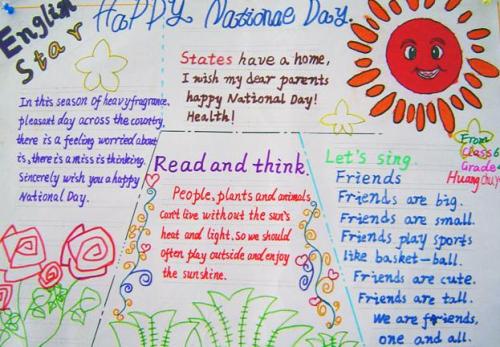 English
Star
HAPPY National Day.
States have a home,
I wish my dear parents
happy National Day!
Health!
In this season of heavy fragrance,
pleasant day across the country,
there is a feeling worried about
is, there is a miss is thinking.
Sincerely wish you a happy
National Day.
Read and think.
People, plants and animals
can't live without the sun's
heat and light. So we should
often play outside and enjoy
the sunshine.
Let's sing.
Friends
Friends are big.
Friends are small.
Friends play sports
like basket-ball.
Friends are cute.
Friends are tall.
We are friends,
one and all.
From
Class 6
Grade
Huang